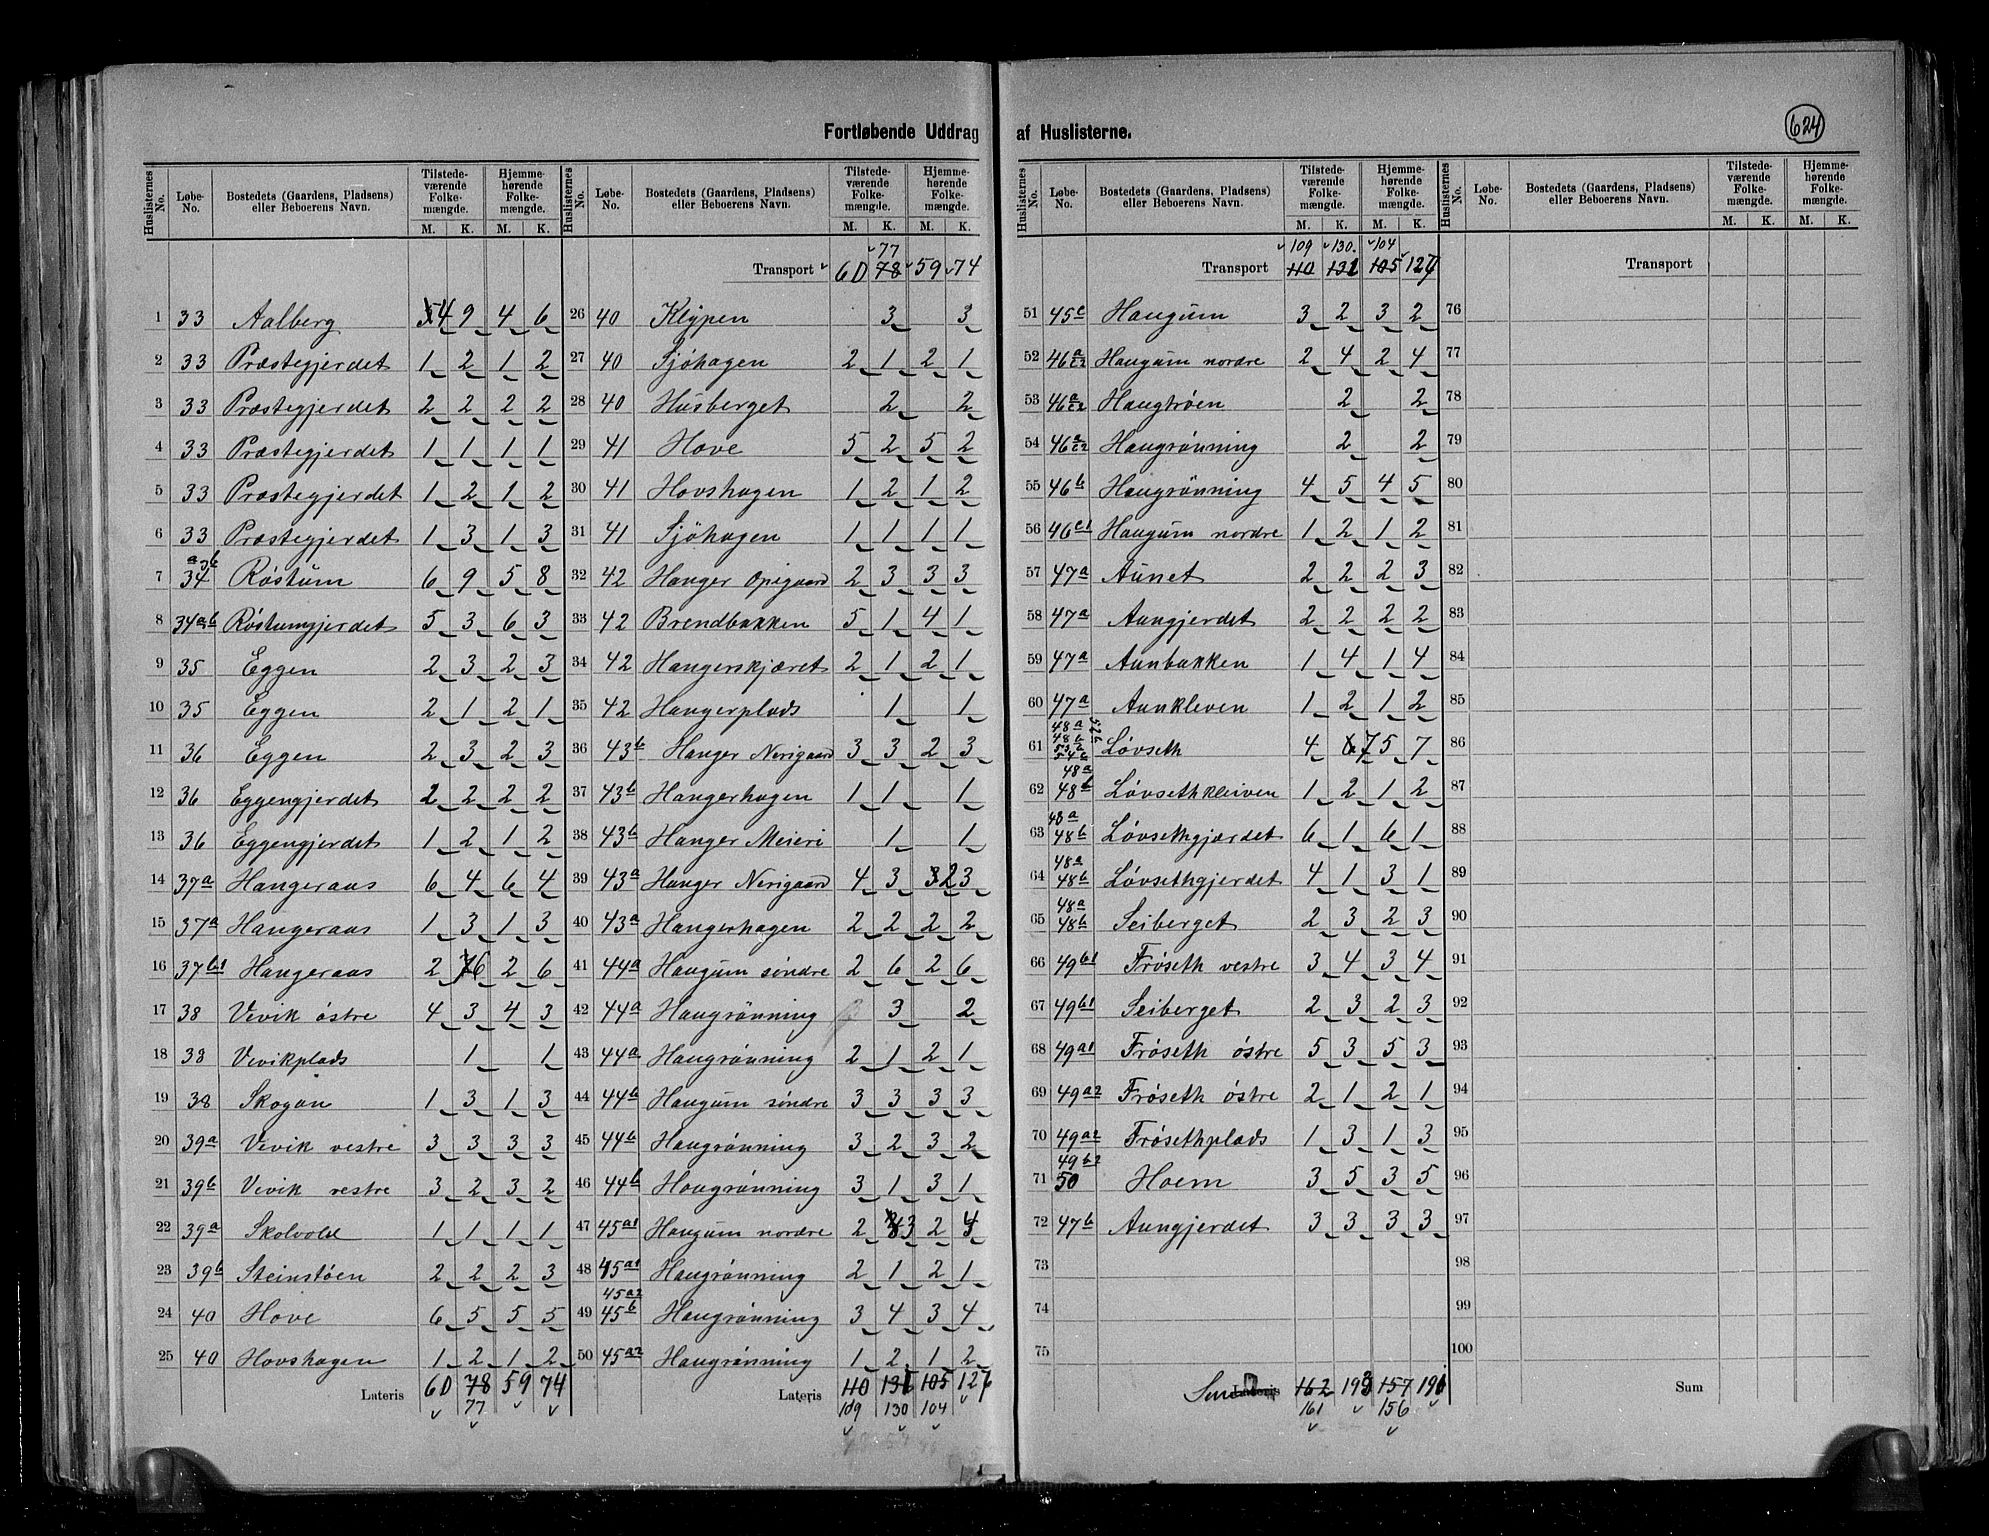 Fortløbende Uddrag af Huslisterne.
624
Huslisternes No. Løbe-No. Bostedets (Gaardens, Pladsens) eller Beboerens Navn. Tilstedeværende Folkemængde. M. K. Hjemmehørende Folkemængde. M. K.
1 33 Aalberg 5 4 9 4 6
2 33 Præstegjerdet 1 2 1 2
3 33 Præstegjerdet 2 2 2 2
4 33 Præstegjerdet 1 1 1 1
5 33 Præstegjerdet 1 2 1 2
6 33 Præstegjerdet 1 3 1 3
7 34 a b Røstum 6 9 5 8
8 34 a b Røstumgjerdet 5 3 6 3
9 35 Eggen 2 3 2 3
10 35 Eggen 2 1 2 1
11 36 Eggen 2 3 2 3
12 36 Eggengjerdet 2 2 2 2
13 36 Eggengjerdet 1 2 1 2
14 37a Hangeraas 6 4 6 4
15 37a Hangeraas 1 3 1 3
16 37b1 Hangeraas 2 7 6 2 6
17 38 Vevik østre 4 3 4 3
18 38 Vevikplads 1 1
19 38 Skogan 1 3 1 3
20 39a Vevik vestre 3 3 3 3
21 39b Vevik vestre 3 2 3 2
22 39a Skolvold 1 1 1 1
23 39b Steinstøen 2 2 2 3
24 40 Hove 6 5 5 5
25 40 Hovshagen 1 2 1 2
Lateris 60 78 59 74
77
Huslisternes No. Løbe-No. Bostedets (Gaardens, Pladsens) eller Beboerens Navn. Tilstedeværende Folkemængde. M. K. Hjemmehørende Folkemængde. M. K.
77
Transport 60 78 59 74
26 40 Klypen 3 3
27 40 Sjöhagen 2 1 2 1
28 40 Husberget 2 2
29 41 Hove 5 2 5 2
30 41 Hovshagen 1 2 1 2
31 41 Sjöhagen 1 1 1 1
32 42 Hanger Opigaard 2 3 3 3
33 42 Brendbakken 5 1 4 1
34 42 Hangerskjæret 2 1 2 1
35 42 Hangerplads 1 1
36 43b Hanger Nerigaard 3 3 2 3
37 43b Hangerhagen 1 1 1
38 43b Hanger Meieri 1 1
39 43a Hanger Nerigaard 4 3 3 2 3
40 43a Hangerhagen 2 2 2 2
41 44a Haugum søndre 2 6 2 6
42 44a Haugrønning 3 2
43 44a Haugrønning 2 1 2 1
44 44b Haugum søndre 3 3 3 3
45 44b Haugrønning 3 2 3 2
46 44b Haugrønning 3 1 3 1
47 45a1 Haugum nordre 2 3 2
48 45a1 Haugrønning 2 1 2 1
49 45a2 45b Haugrønning 3 4 3 4
50 45a2 Haugrønning 1 2 1 2
Lateris 110 131 105 127
109 130 104
Huslisternes No. Løbe-No. Bostedets (Gaardens, Pladsens) eller Beboerens Navn. Tilstedeværende Folkemængde. M. K. Hjemmehørende Folkemængde. M. K.
109 130 104
Transport 110 131 105 127
51 45c Haugum 3 2 3 2
52 46a c2 Haugum nordre 2 4 2 4
53 46a c2 Haugtrøen 2 2
54 46a c2 Haugrønning 2 2
55 46b Haugrønning 4 5 4 5
56 46c1 Haugum nordre 1 2 1 2
57 47a Aunet 2 2 2 3
58 47a Aungjerdet 2 2 2 2
59 47a Aunbakken 1 4 1 4
60 47a Aunkleven 1 2 1 2
61 48a 48b Løvseth 4 6 7 5 7
62 48a 48b Løvsethkleiven 1 2 1 2
63 48a 48b Løvsethgjærdet 6 1 6 1
64 48a 48b Løvsethgjerdet 4 1 3 1
65 48a 48b Seiberget 2 3 2 3
66 49b1 Frøseth vestre 3 4 3 4
67 49b1 Seiberget 2 3 2 3
68 49a1 Frøseth østre 5 3 5 3
69 49a2 Frøseth østre 2 1 2 1
70 49a2 Frøsethplads 1 3 1 3
71 49b2 50 Hoem 3 5 3 5
72 47b Aungjerdet 3 3 3 3
73
74
75
Lateris 162 193 157 191
161 156
Huslisternes No. Løbe-No. Bostedets (Gaardens, Pladsens) eller Beboerens Navn. Tilstedeværende Folkemængde. M. K. Hjemmehørende Folkemængde. M. K.
Transport
76
77
78
79
80
81
82
83
84
85
86
87
88
89
90
91
92
93
94
95
96
97
98
99
100
Sum